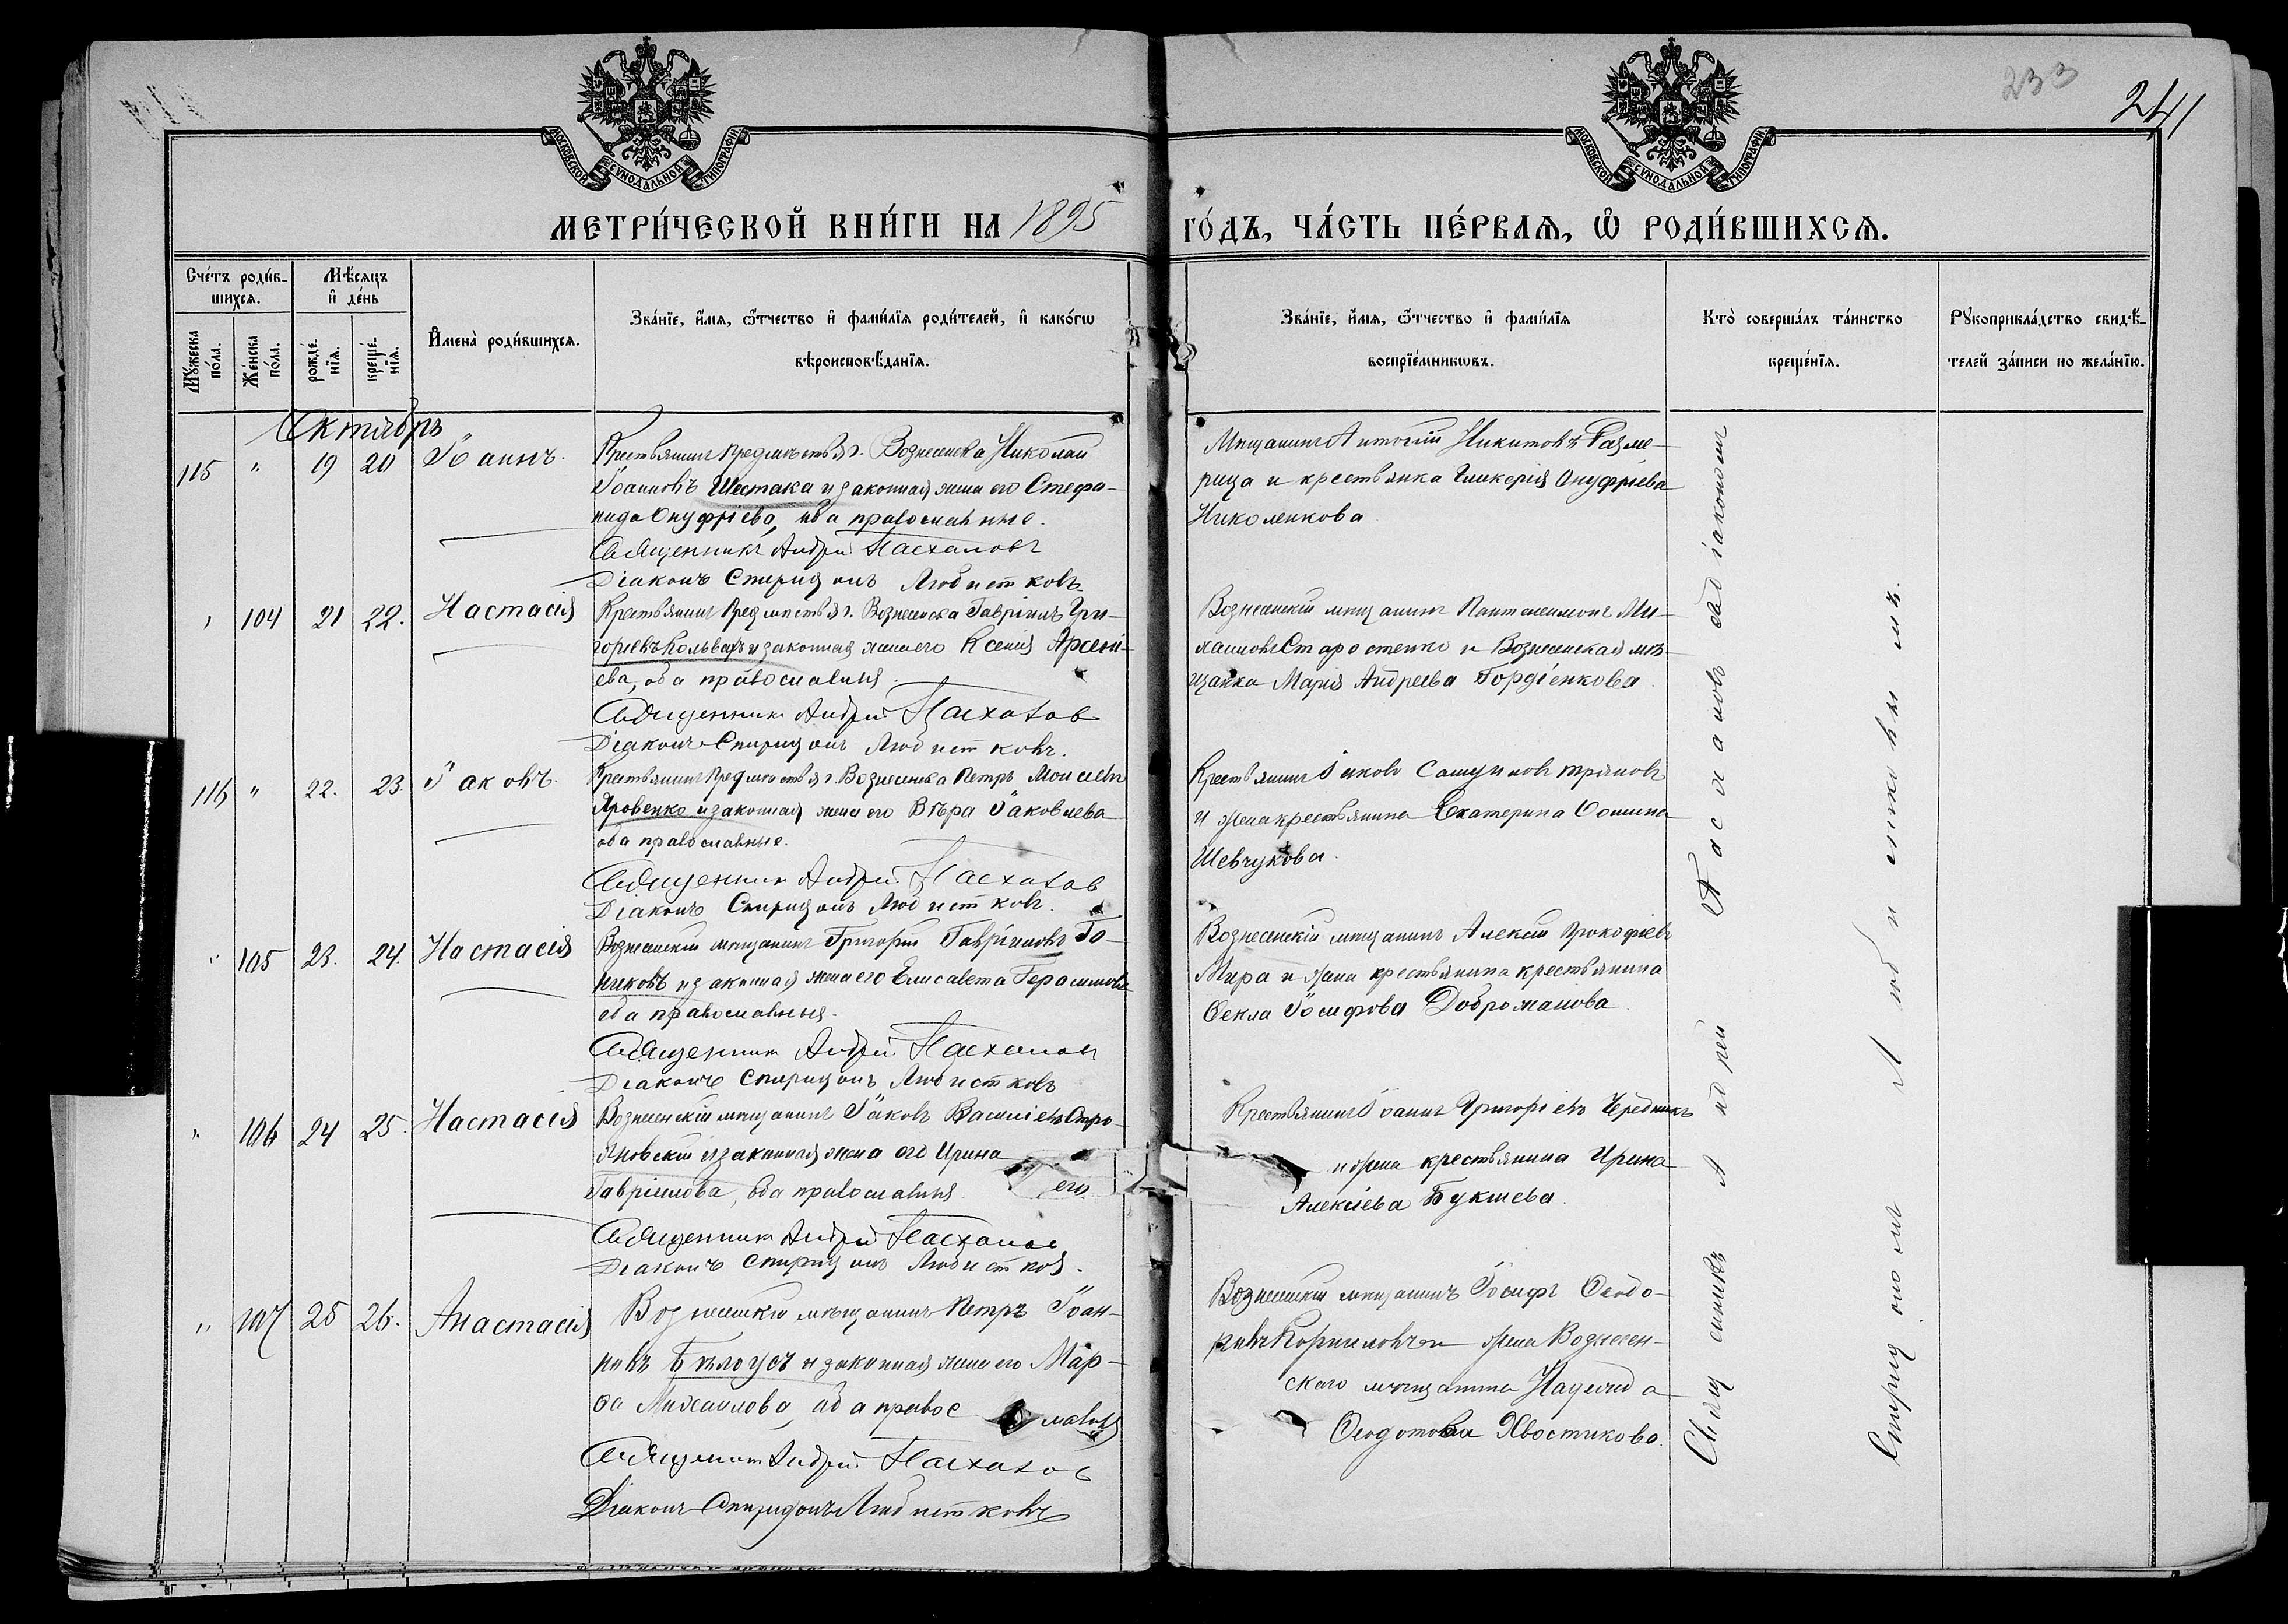 233
241
МОСКОВСКОЙ СѴНОДАЛЬНОЙ ТИПОГРАФІИ
МОСКОВСКОЙ СѴНОДАЛЬНОЙ ТИПОГРАФІИ
МЕТРИ́ЧЕСКОЙ КНИ́ГИ НА 1895 ГО́ДЪ, ЧА́СТЬ ПЕ́РВАѦ, Ѡ҆ РОДИ́ВШИХСѦ.
Сче́тъ роди́в-
шихсѧ.
Мꙋ́жеска по́ла.
Же́нска по́ла.
Мѣ́сѧцъ
и҆ де́нь
рожде́-
нїѧ.
креще́-
нїѧ.
И҆мена̀ роди́вшихсѧ.
Зва́нїе, и҆́мѧ, ѻ҆́тчество и҆ фами́лїѧ роди́телей, и҆ како́гѡ
вѣроисповѣ́данїѧ.
Зва́нїе, и҆́мѧ, ѻ҆́тчество и҆ фами́лїѧ
воспрїе́мникѡвъ.
Кто̀ соверша́лъ та́инство
креще́нїѧ.
Рꙋкоприкла́дство свидѣ́-
телей за́писи по жела́нїю.
Октябрь
115 " 19 20 Іоаннъ.
Крестьянинъ предмѣстья г. Вознесенска Николай
Іоанновъ Шестака и законная жена его Стефа-
нида Онуфріева, оба православные.
Священникъ Андрей Пасхаловъ
Діаконъ Спиридонъ Любистковъ
Мѣщанинъ Антоній Никитовъ Разме-
рица и крестьянка Гликерія Онуфріева
Николенкова
" 104 21 22. Настасія
Крестьянинъ предмѣстья г. Вознесенска Гавріилъ Гри-
горьевъ Кольвахъ и законная жена его Ксенія Арсені-
ева, оба православныя.
Священник Андрей Пасхалов
Діаконъ Спиридонъ Любистковъ.
Вознесенскій мѣщанинъ Пантелеимонъ Ми-
хаиловъ Старостенко и Вознесенская мѣ-
щанка Марія Андреева Гордіенкова.
116 " 22. 23. Іаковъ.
Крестьянинъ предмѣстья г. Вознесенска Петръ Моисеевъ
Яровенко и законная жена его Вѣра Іаковлева
оба православные.
Священник Андрей Пасхалов
Діаконъ Спиридонъ Любистковъ.
Крестьянинъ Іаковъ
и жена крестьянина Екатерина Ѳомина
Шевчукова.
" 105 23. 24. Настасія
Вознесенскій мѣщанинъ Григорій Гавріиловъ Го-
никовъ и законная жена его Елисавета Герасимова
оба православныя.
Священник Андрей Пасхалов
Діаконъ Спиридонъ Любистковъ
Вознесенскій мѣщанинъ Алексій Прокофіевъ
Мира и жена крестьянина крестьянина
Ѳекла Іосифова Доброманова.
" 106 24 25. Настасія
Вознесенскій мѣщанинъ Іаковъ Василіевъ Стро-
яновскій и законная жена его Ирина
Гавріилова, оба православныя. его
Священник Андрей Пасхалов
Діаконъ Спиридонъ Любистков.
Крестьянинъ Іоаннъ Григоріевъ Чередникъ
и жена крестьянина Ирина
Алексіева Букшева.
" 107 25 26. Анастасія
Вознесенскій мѣщанинъ Петръ Іоан-
новъ Бѣлоусъ и законная жена его Мар-
ѳа Михаилова, оба православныя
Священник Андрей Пасхалов
Діаконъ Спиридонъ Любистковъ
Вознесенскій мѣщанинъ Іосифъ Ѳеодо-
ровъ Корниловъ и жена Вознесен-
скаго мѣщанина Надежда
Ѳеодотова Хвостикова.
Священникъ Андрей Пасхаловъ съ діакономъ
Спиридономъ Любистковымъ.